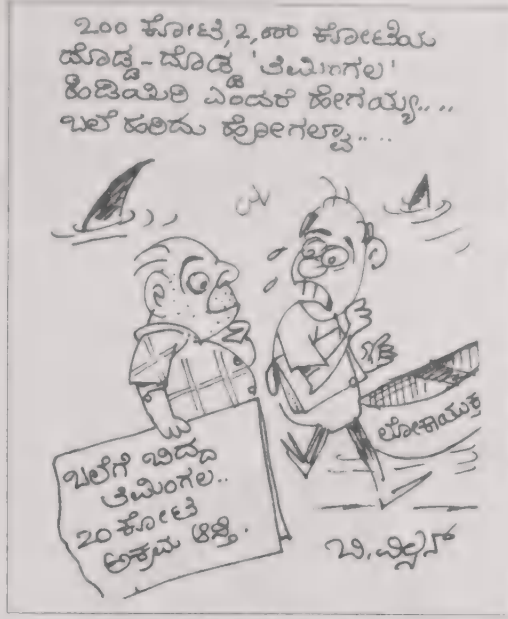 ೨೦೦ ಕೋಟಿ, ೨,೦೦೦ ಕೋಟಿಯ
ದೊಡ್ಡ-ದೊಡ್ಡ 'ತಿಮಿಂಗಲ'
ಹಿಡಿಯಿರಿ ಎಂದರೆ ಹೇಗಯ್ಯ....
ಬಲೆ ಹರಿದು ಹೋಗಲ್ವಾ....
ಲೋಕಾಯುಕ್ತ
ಬಲೆಗೆ ಬಿದ್ದ
ತಿಮಿಂಗಲ..
೨೦ ಕೋಟಿ
ಅಕ್ರಮ ಆಸ್ತಿ.
ಬಿ.ವಿಲ್ಸನ್